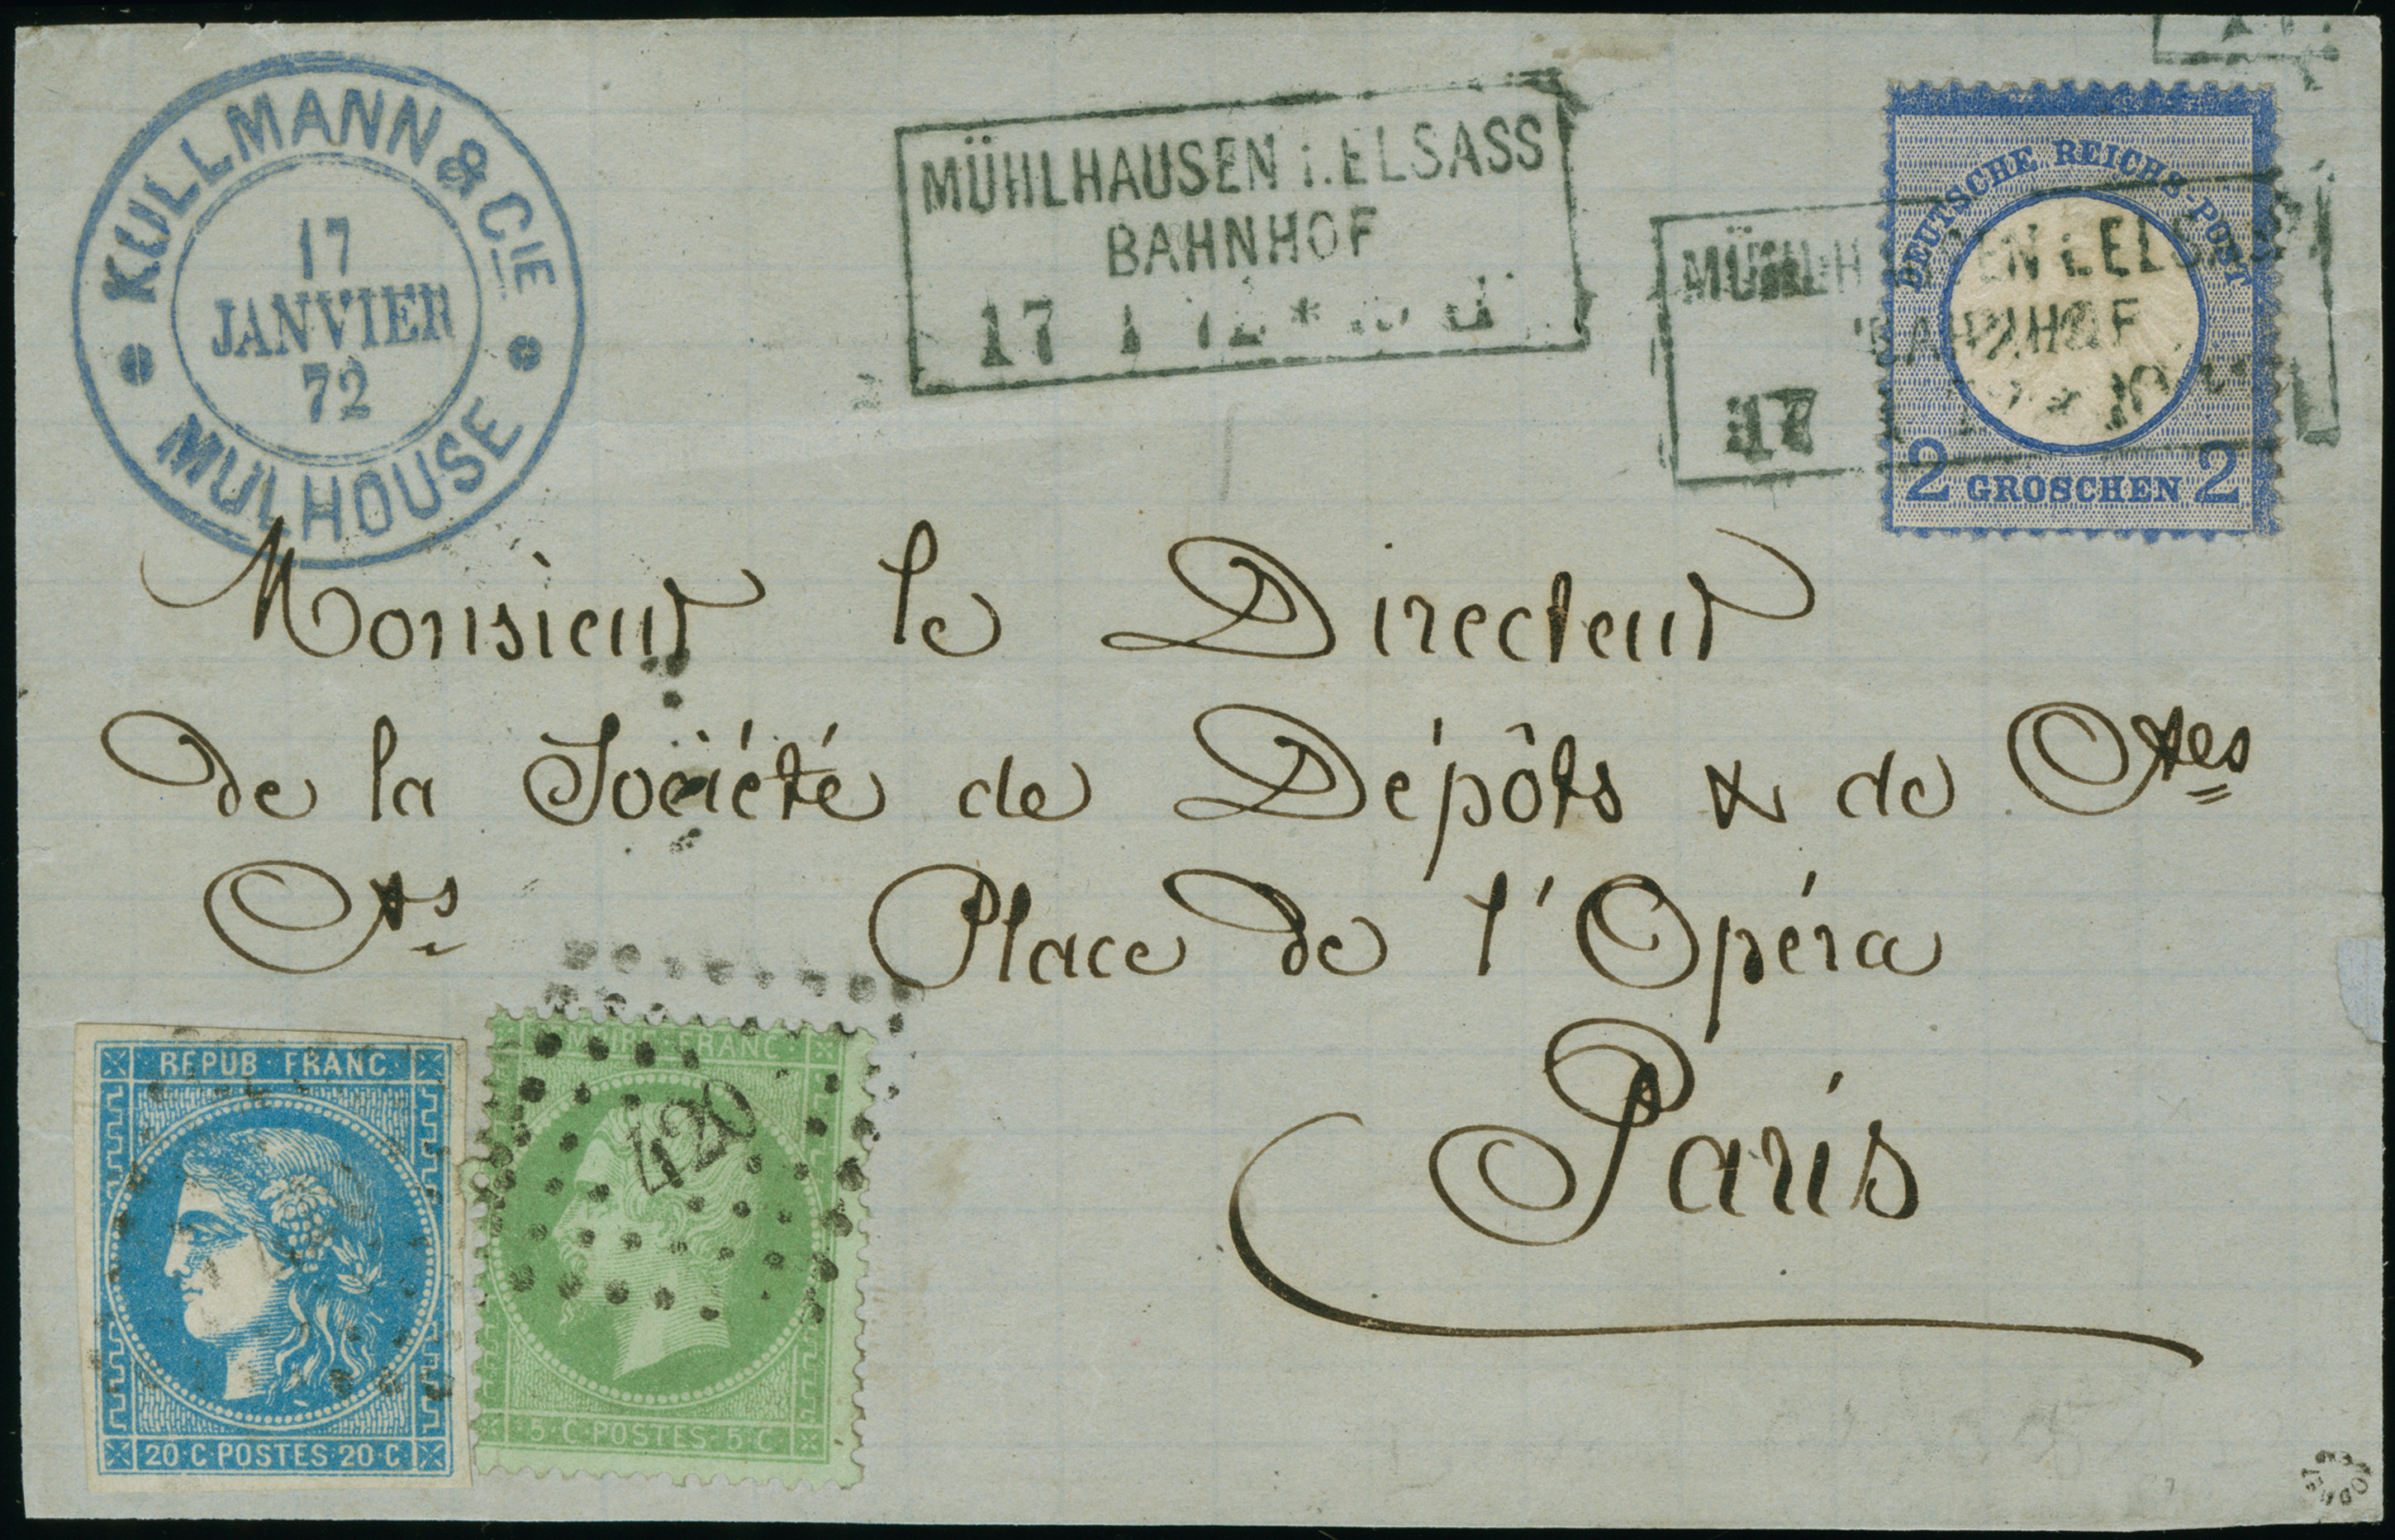 KULLMANN & CIE
17
JANVIER
72
MULHOUSE
MÜHLHAUSEN i. ELSASS
BAHNHOF
17 1 72 *
DEUTSCHE REICHS-POST
2 GROSCHEN 2
17
Monsieur le Directeur
de la Société de Dépôts & de Ctes
Cts Place de l'Opéra
Paris
REPUB · FRANC ·
20 · C · POSTES · 20 · C
EMPIRE · FRANC ·
420
5 · C · POSTES · 5 · C